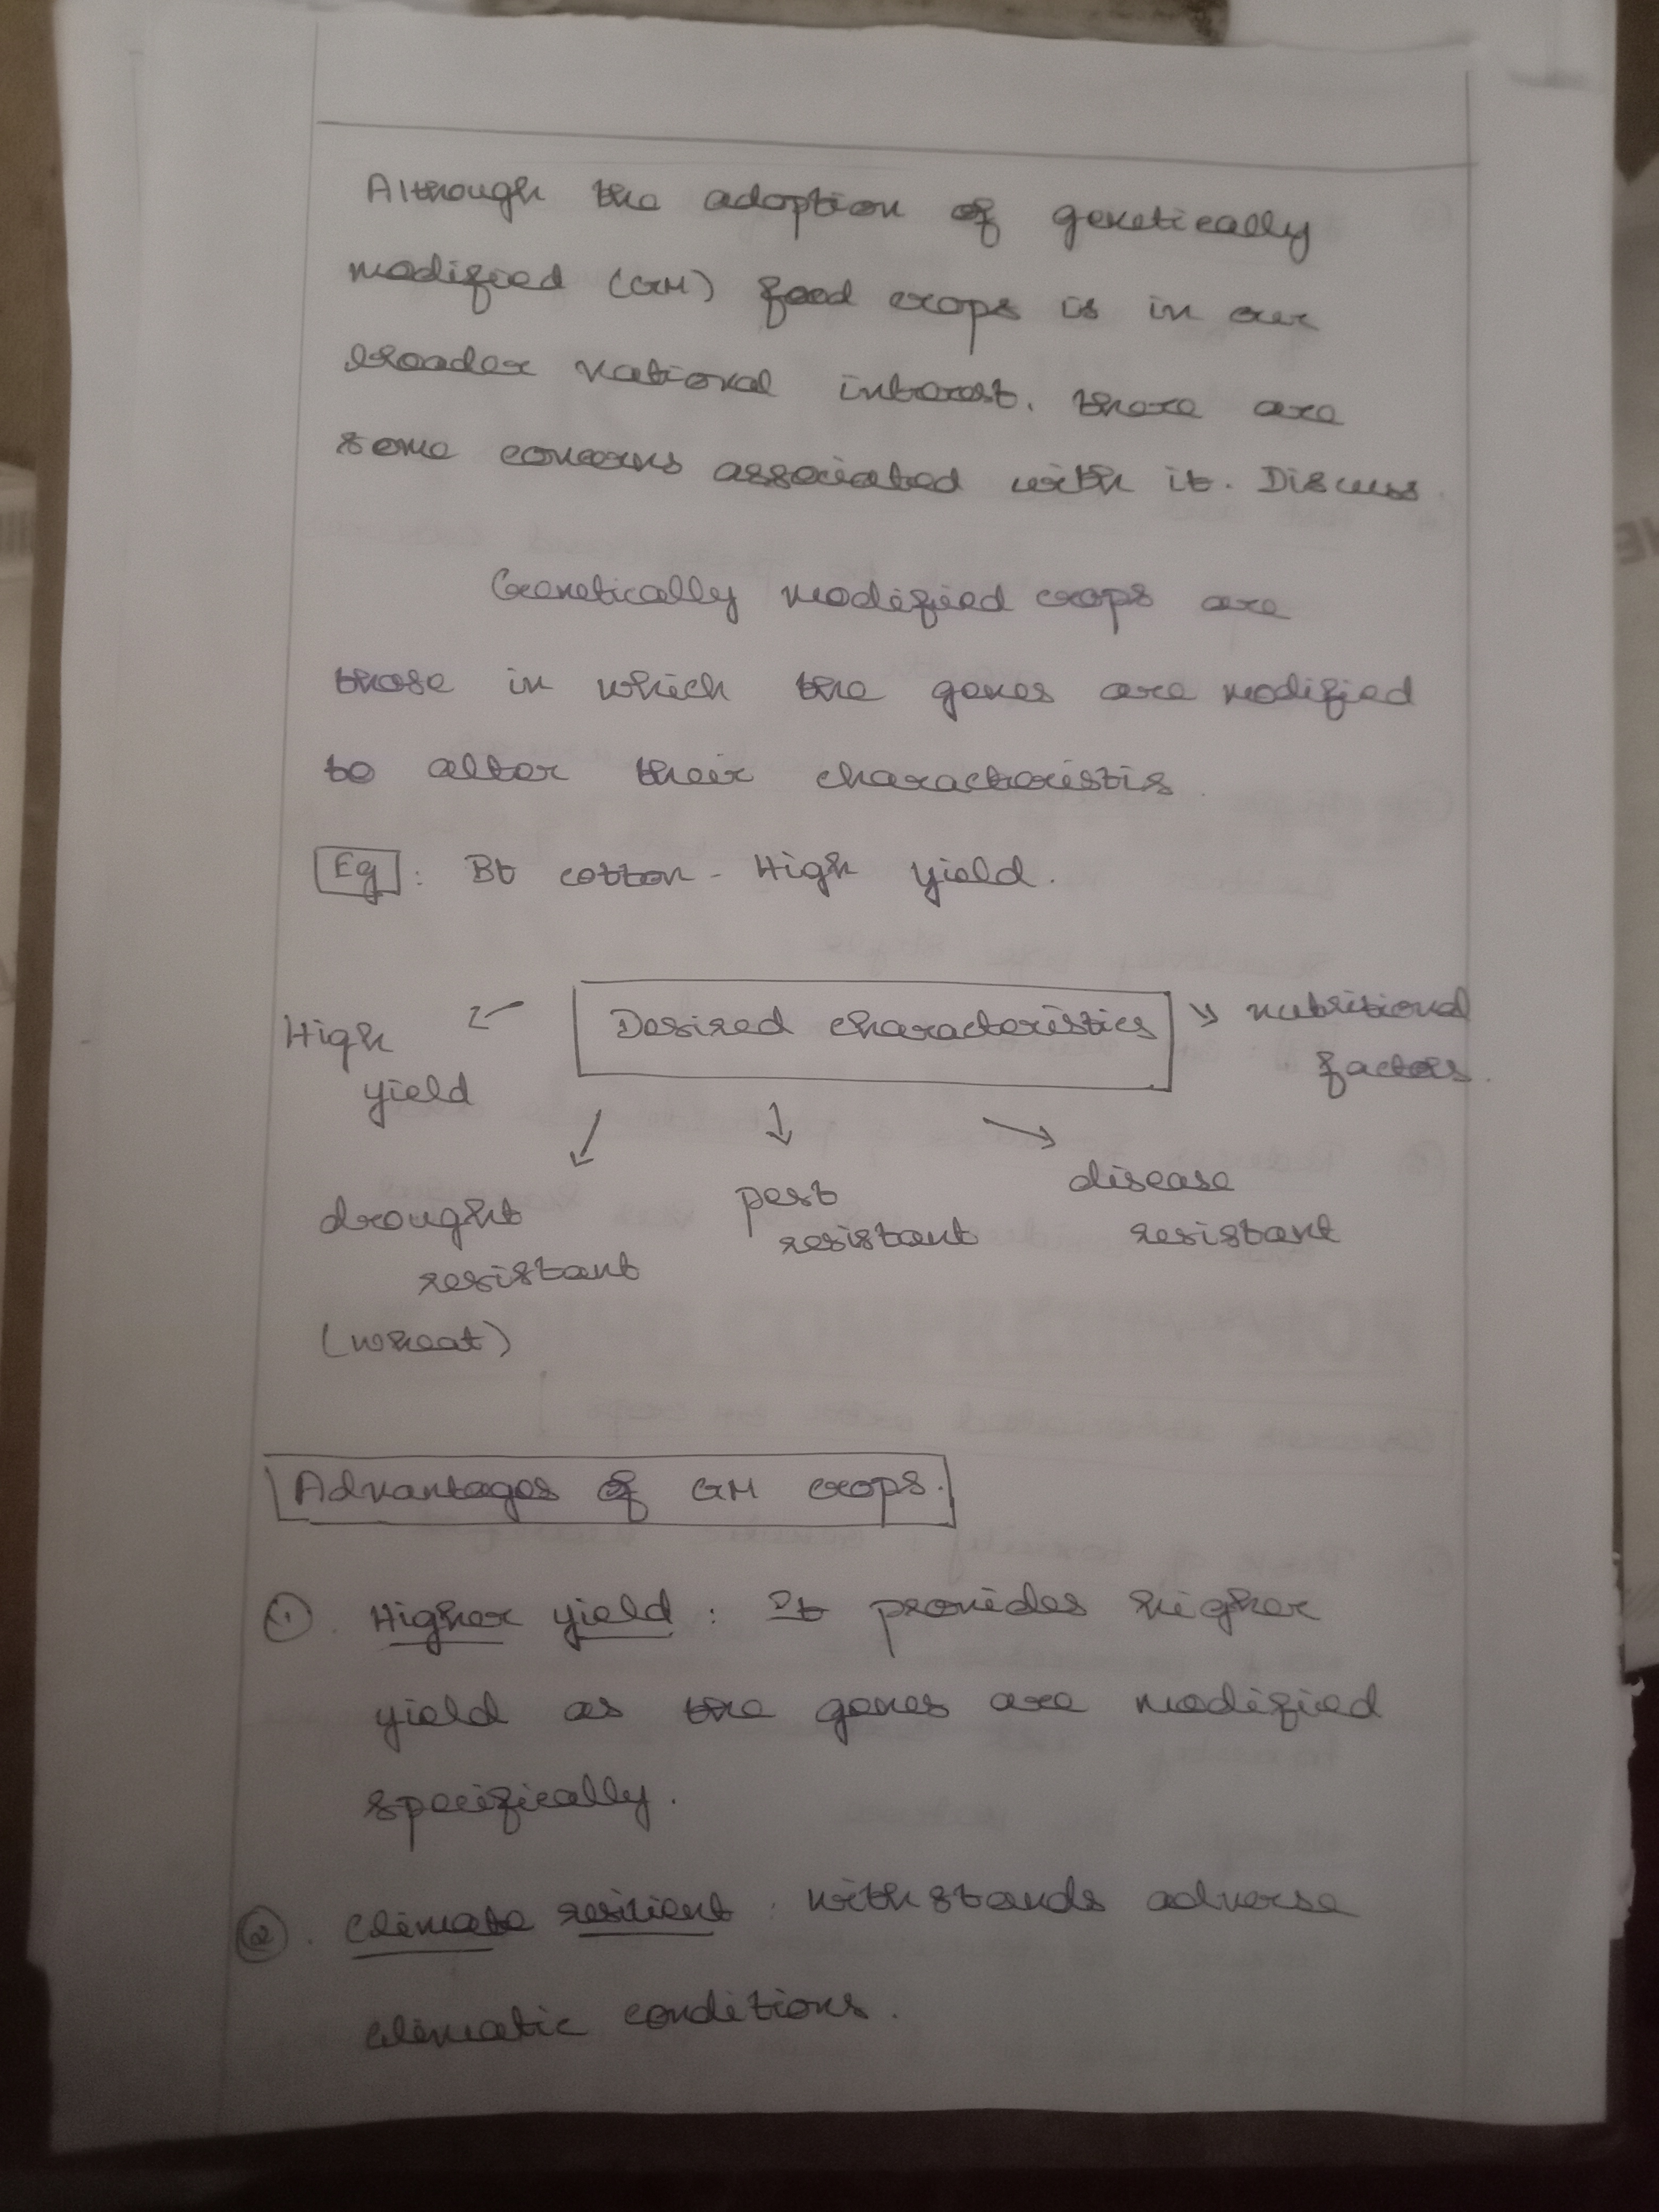 Although the adoption of genetically
modified (GM) food crops is in our
broader national interest. there are
some concerns associated with it. Discuss.
Genetically modified crops are
those in which the genes are modified
to alter their characteristis.
Eg : Bt cotton - High yield.
Desired characteristics
High
yield
nutritional
factors.
drought
resistant
(wheat)
pest
resistant
disease
resistant
Advantages of GM crops.
1. Higher yield : It provides higher
yield as the genes are modified
specifically.
2. Climate resilient : withstands adverse
climatic conditions.